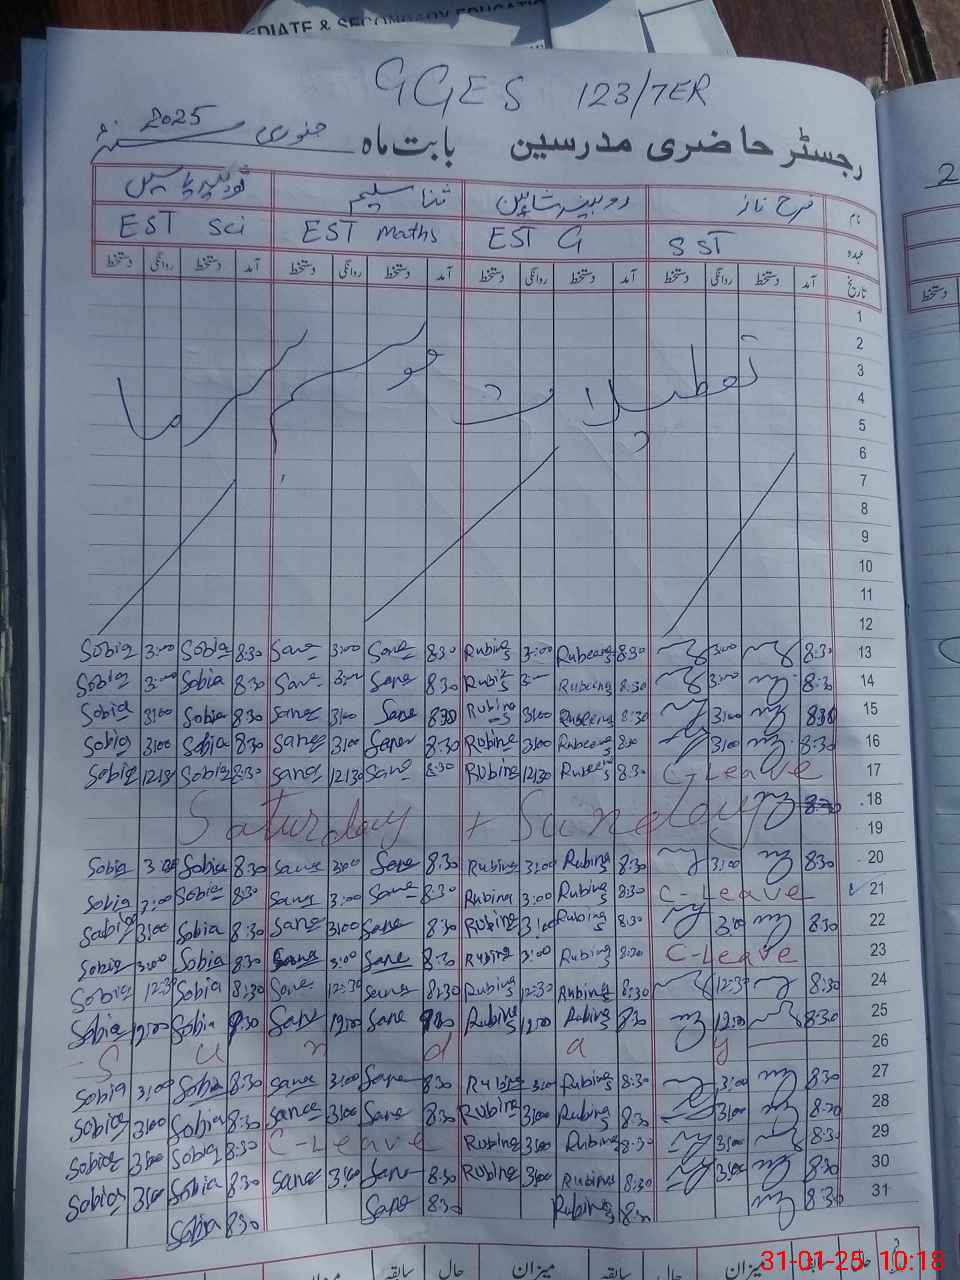 EDIATE & SECONDARY EDUCATION
GGES 123/7ER
رجسٹر حاضری مدرسین بابت ماہ جنوری 2025
نام فرح ناز روبینہ شاہین ثنا سلیم
عہدہ SST EST G EST Maths EST Sci
تاریخ آمد دستخط روانگی دستخط آمد دستخط روانگی دستخط آمد دستخط روانگی دستخط آمد دستخط روانگی دستخط
1
2
3
تعطیلات موسم سرما
4
5
6
7
8
9
10
11
12
Sobia 3:00 Sobia 8:30 Sana 3:00 Sana 8:30 Rubina 3:00 Rubeena 8:30 3:00 8:30 13
Sobia 3:00 Sobia 8:30 Sana 3:00 Sana 8:30 Rubina 3:00 Rubeena 8:30 3:00 8:30 14
Sobia 3:00 Sobia 8:30 Sana 3:00 Sana 8:30 Rubina 3:00 Rubeena 8:30 3:00 8:30 15
Sobia 3:00 Sobia 8:30 Sana 3:00 Sana 8:30 Rubina 3:00 Rubeena 8:30 3:00 8:30 16
Sobia 12:30 Sobia 8:30 Sana 12:30 Sana 8:30 Rubina 12:30 Rubeena 8:30 C-Leave 17
Saturday + Sunday 8:30 18
19
Sobia 3:00 Sobia 8:30 Sana 3:00 Sana 8:30 Rubina 3:00 Rubina 8:30 3:00 8:30 20
Sobia 3:00 Sobia 8:30 Sana 3:00 Sana 8:30 Rubina 3:00 Rubina 8:30 C-Leave 21
Sobia 3:00 Sobia 8:30 Sana 3:00 Sana 8:30 Rubina 3:00 Rubina 8:30 3:00 8:30 22
Sobia 3:00 Sobia 8:30 Sana 3:00 Sana 8:30 Rubina 3:00 Rubina 8:30 C-Leave 23
Sobia 12:30 Sobia 8:30 Sana 12:30 Sana 8:30 Rubina 12:30 Rubina 8:30 12:30 8:30 24
Sobia 12:00 Sobia 8:30 Sana 12:00 Sana Rubina 12:00 Rubina 8:30 12:00 8:30 25
Sunday 26
Sobia 3:00 Sobia 8:30 Sana 3:00 Sana 8:30 Rubina 3:00 Rubina 8:30 3:00 8:30 27
Sobia 3:00 Sobia 8:30 Sana 3:00 Sana 8:30 Rubina 3:00 Rubina 8:30 3:00 8:30 28
Sobia 3:00 Sobia 8:30 C-Leave Rubina 3:00 Rubina 8:30 3:00 8:30 29
Sobia 3:00 Sobia 8:30 Sana 3:00 Sana 8:30 Rubina 3:00 Rubina 8:30 3:00 8:30 30
Sobia 8:30 Sana 8:30 Rubina 8:30 8:30 31
حال سابقہ میزان حال سابقہ میزان حال
31-01-25 10:18
2
دستخط